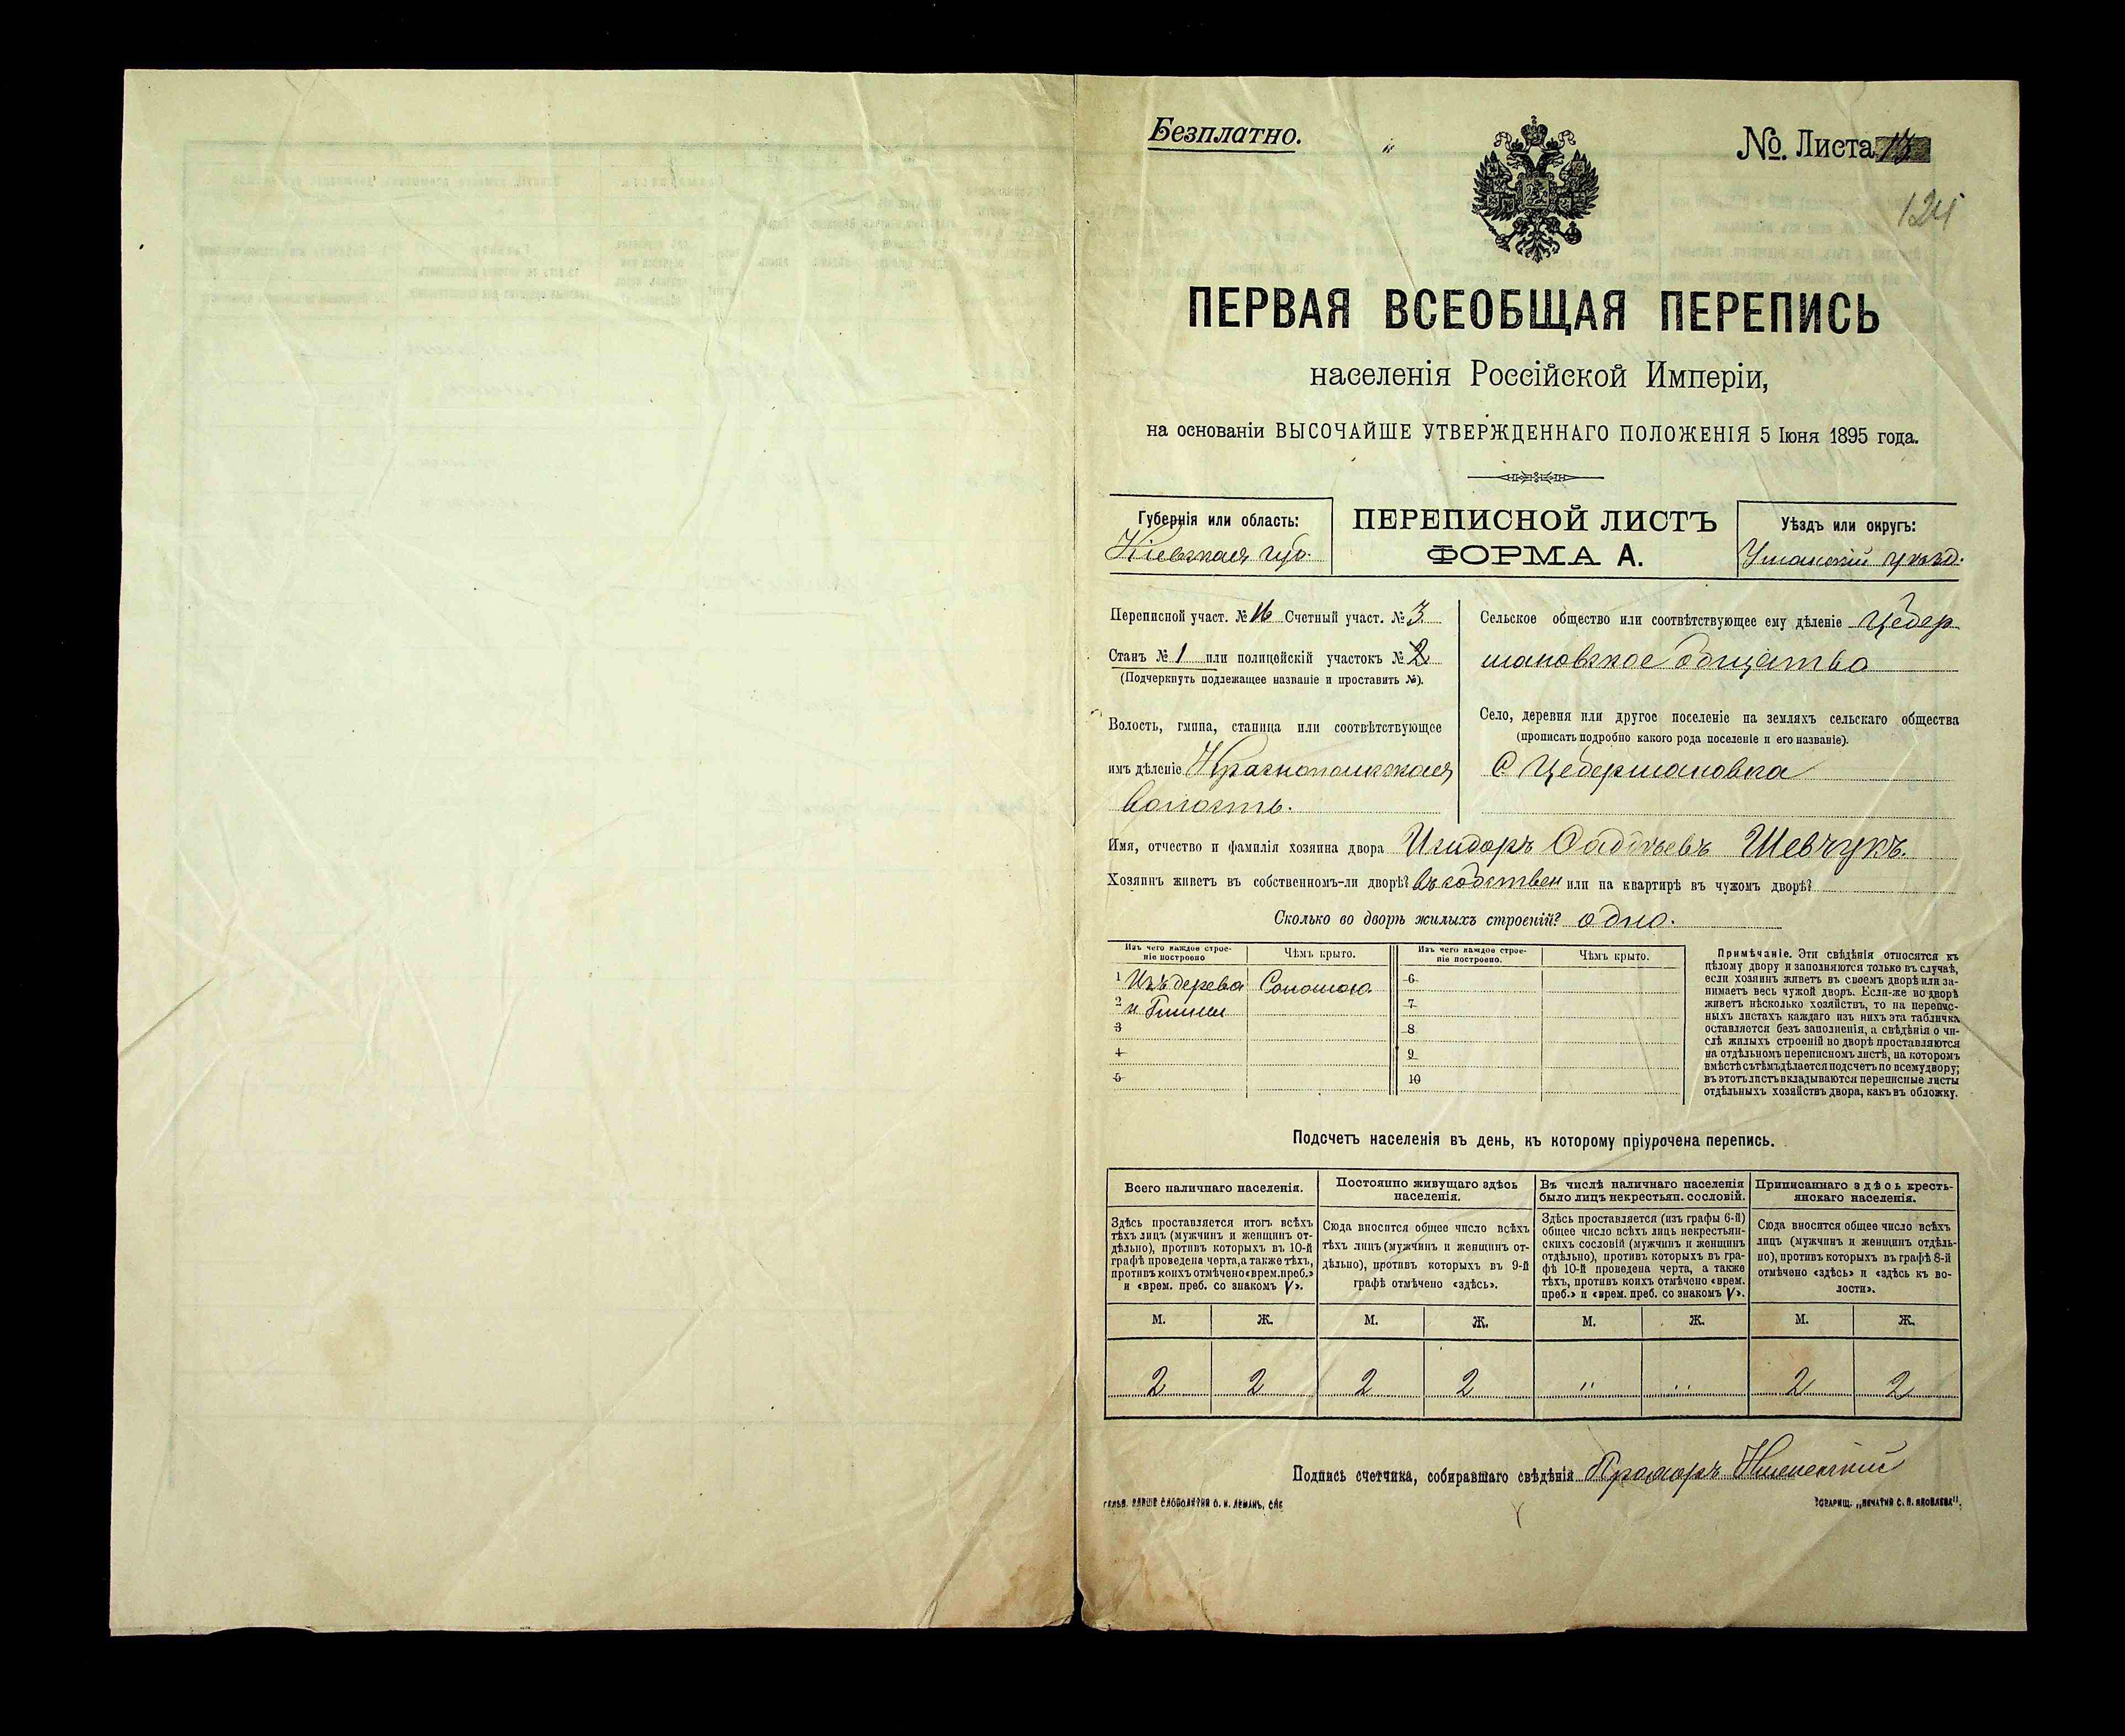 Безплатно.
№ Листа 13
124
ПЕРВАЯ ВСЕОБЩАЯ ПЕРЕПИСЬ
населенія Россійской Имперіи,
на основаніи ВЫСОЧАЙШЕ УТВЕРЖДЕННАГО ПОЛОЖЕНІЯ 5 Іюня 1895 года.
Губернія или область:
Кіевская губ.
ПЕРЕПИСНОЙ ЛИСТЪ
ФОРМА А.
Уѣздъ или округъ:
Уманскій уѣзд.
Переписной участ. № 16 Счетный участ. № 3
Станъ № 1 или полицейскій участокъ № 2
(Подчеркнуть подлежащее названіе и проставить №).
Волость, гмина, станица или соотвѣтствующее
имъ дѣленіе Краснопольская
волость.
Сельское общество или соотвѣтствующее ему дѣленіе Цебер
мановское общество
Село, деревня или другое поселеніе на земляхъ сельскаго общества
(прописать подробно какого рода поселеніе и его названіе).
С Цебермановка
Имя, отчество и фамилія хозяина двора Исидоръ Фаддѣевъ Шевчукъ.
Хозяинъ живетъ въ собственномъ-ли дворѣ? въ собствен или на квартирѣ въ чужомъ дворѣ?
Сколько во дворѣ жилыхъ строеній? одно.
Изъ чего каждое строе-
ніе построено
Чѣмъ крыто.
Изъ чего каждое строе-
ніе построено.
Чѣмъ крыто.
1 Изъ дерева Соломою
2 и Глины
3
4
5
6
7
8
9
10
Примѣчаніе. Эти свѣдѣнія относятся къ
цѣлому двору и заполняются только въ случаѣ,
если хозяинъ живетъ въ своемъ дворѣ или за-
нимаетъ весь чужой дворъ. Если-же во дворѣ
живетъ нѣсколько хозяйствъ, то на перепис-
ныхъ листахъ каждаго изъ нихъ эта табличка
оставляется безъ заполненія, а свѣдѣнія о чи-
слѣ жилыхъ строеній во дворѣ проставляются
на отдѣльномъ переписномъ листѣ, на которомъ
вмѣстѣ съ тѣмъ дѣлается подсчетъ по всему двору;
въ этотъ листъ вкладываются переписные листы
отдѣльныхъ хозяйствъ двора, какъ въ обложку.
Подсчетъ населенія въ день, къ которому пріурочена перепись.
Всего наличнаго населенія.
Здѣсь проставляется итогъ всѣхъ
тѣхъ лицъ (мужчинъ и женщинъ от-
дѣльно), противъ которыхъ въ 10-й
графѣ проведена черта, а также тѣхъ,
противъ коихъ отмѣчено «врем. преб.»
и «врем. преб. со знакомъ V».
Постоянно живущаго здѣсь
населенія.
Сюда вносится общее число всѣхъ
тѣхъ лицъ (мужчинъ и женщинъ от-
дѣльно), противъ которыхъ въ 9-й
графѣ отмѣчено «здѣсь».
Въ числѣ наличнаго населенія
было лицъ некрестьян. сословій.
Здѣсь проставляется (изъ графы 6-й)
общее число всѣхъ лицъ некрестьян-
скихъ сословій (мужчинъ и женщинъ
отдѣльно), противъ которыхъ въ гра-
фѣ 10-й проведена черта, а также
тѣхъ, противъ коихъ отмѣчено «врем.
преб.» и «врем. преб. со знакомъ V».
Приписаннаго здѣсь кресть-
янскаго населенія.
Сюда вносится общее число всѣхъ
лицъ (мужчинъ и женщинъ отдѣль-
но), противъ которыхъ въ графѣ 8-й
отмѣчено «здѣсь» и «здѣсь къ во-
лости».
М. Ж. М. Ж. М. Ж. М. Ж.
2 2 2 2 " " 2 2
Подпись счетчика, собиравшаго свѣдѣнія
О. И. ЛЕМАНЪ, СПБ
ТОВАРИЩ. „ПЕЧАТНЯ С. П. ЯКОВЛЕВА".